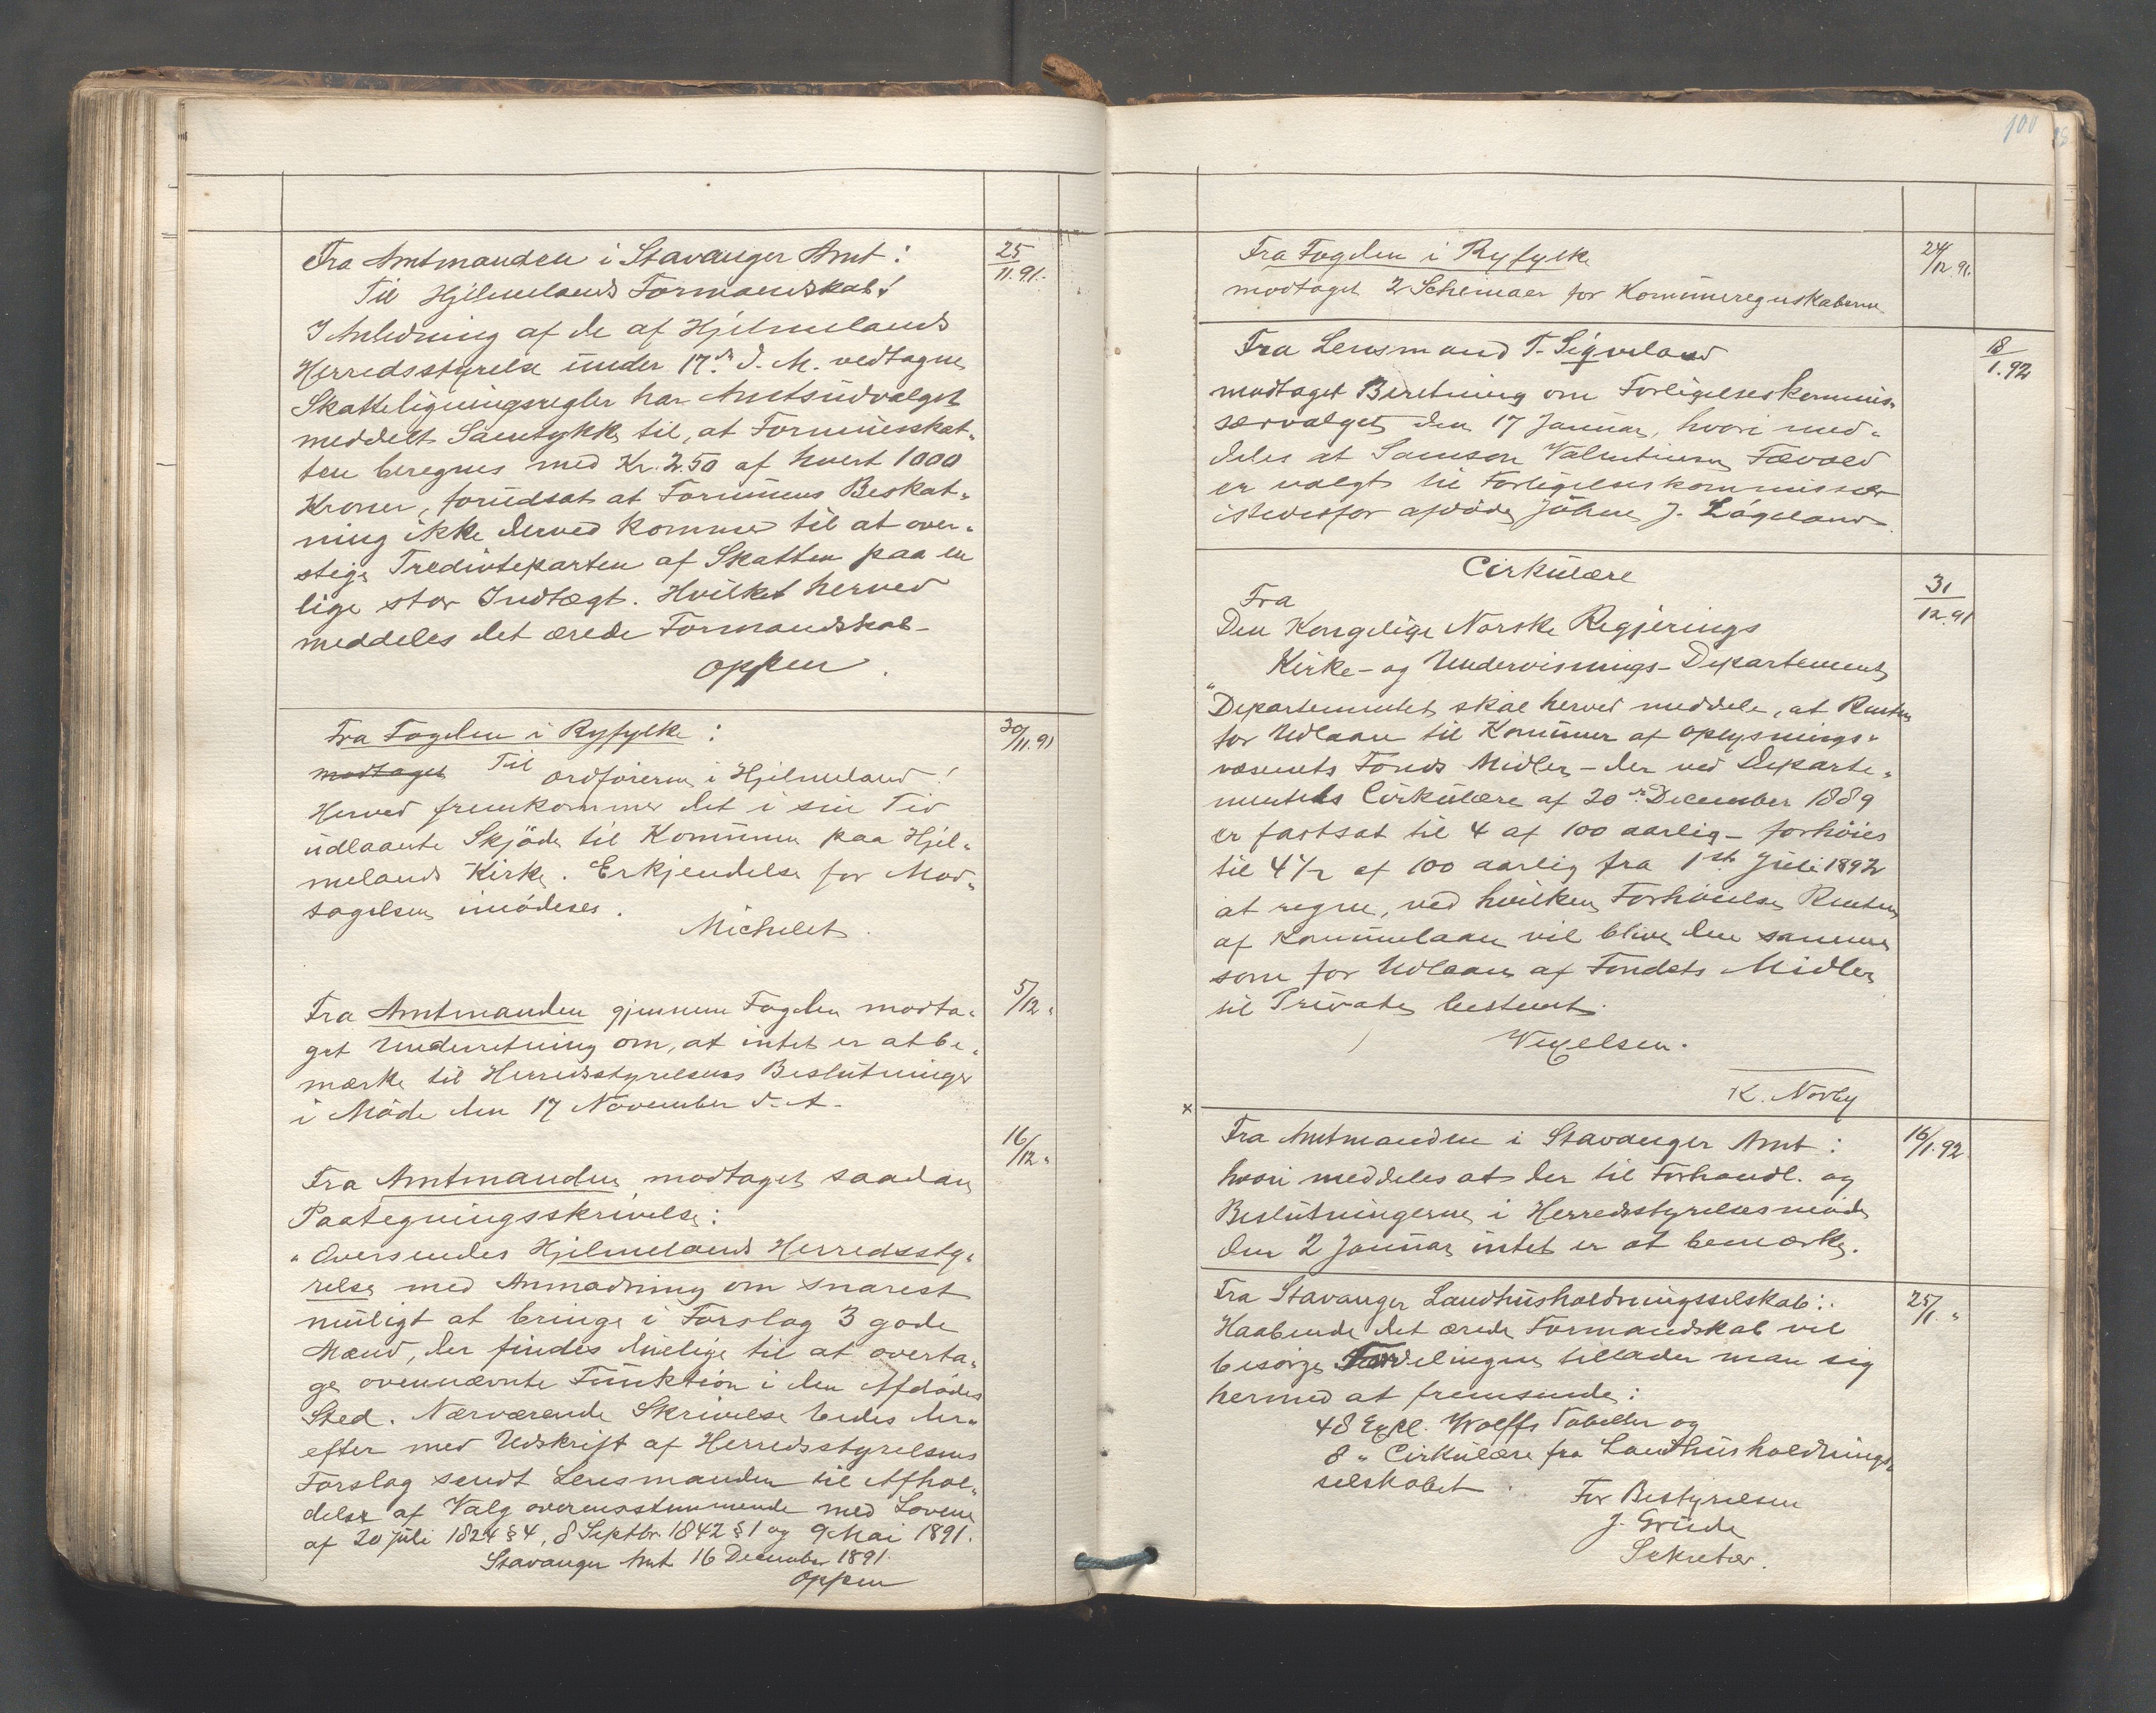 Fra Amtmanden i Stavanger Amt:
25/11.91.
Til Hjelmelands Formandskab!
I Anledning af de af Hjelmelands
Herredsstyrelse under 17de d. M. vedtagne
Skatteligningsregler har Amtsudvalget
meddelt Samtykke til, at Formuesskat-
ten beregnes med Kr. 2.50 af hvert 1000
Kroner, forudsat at Formuens Beskat-
ning ikke derved kommer til at over-
stige Tredivteparten af Skatten paa en
lige stor Indtægt. Hvilket herved
meddeles det ærede Formandskab-
Oppen.
Fra Fogden i Ryfylke:
30/11.91
modtaget Til Ordføreren i Hjelmeland!
Herved fremkommer det i sin Tid
udlaante Skjøde til Kommunen paa Hjel-
melands Kirke. Erkjendelse for Mod-
tagelsen imødeses.
Michelet.
Fra Amtmanden gjennem Fogden modta-
5/12 "
get Underretning om, at intet er at be-
mærke til Herredsstyrelsens Beslutninger
i Møde den 17 November d. A.
16/12 "
Fra Amtmanden modtaget saadan
Paategningsskrivelse:
"Oversendes Hjelmelands Herredssty-
relse med Anmodning om snarest
muligt at bringe i Forslag 3 gode
Mænd, der findes duelige til at overta-
ge ovennævnte Funktion i den Afdødes
Sted. Nærværende Skrivelse bedes der-
efter med Udskrift af Herredsstyrelsens
Forslag sendt Lensmanden til Afhol-
delse af Valg overensstemmende med Lovene
af 20 Juli 1824 § 4, 8 Septbr. 1842 § 1 og 9 Mai 1891.
Stavanger Amt 16 December 1891.
Oppen
100
Fra Fogden i Ryfylke
24/12.91.
modtaget 2 Schemaer for Kommuneregnskaberne
Fra Lensmand T. Sigveland
18/1.92
modtaget Beretning om Forligelseskommis-
særvalget den 17 Januar, hvori med-
deles at Samson Valentinsen Fævold
er valgt til Forligelseskommissær
istedetfor afdøde Johne J. Lageland.
Cirkulære
31/12.91
Fra
Den Kongelige Norske Regjerings
Kirke- og Undervisnings-Departement
"Departementet skal herved meddele, at Renten
for Udlaan til Kommuner af Oplysnings-
væsenets Fonds Midler - der ved Departe-
mentets Cirkulære af 20de December 1889
er fastsat til 4 af 100 aarlig - forhøies
til 4½ af 100 aarlig fra 1ste Juli 1892
at regne, ved hvilken Forhøielse Renten
af Kommunelaan vil blive den samme
som for Udlaan af Fondets Midler
til Private bestemt.
Wexelsen.
K. Norby
x
Fra Amtmanden i Stavanger Amt:
16/1.92.
hvori meddeles at der til Forhandl. og
Beslutningerne i Herredsstyrelsesmøde
den 2 Januar intet er at bemærke.
Fra Stavanger Landhusholdningsselskab:
25/1. "
Haabende det ærede Formandskab vil
besørge Fordelingen tillader man sig
hermed at fremsende:
48 Expl. Wolffs Tabeller og
8 " Cirkulære fra Landhusholdnings-
selskabet.
For Bestyrelsen
J. Grude
Sekretær.